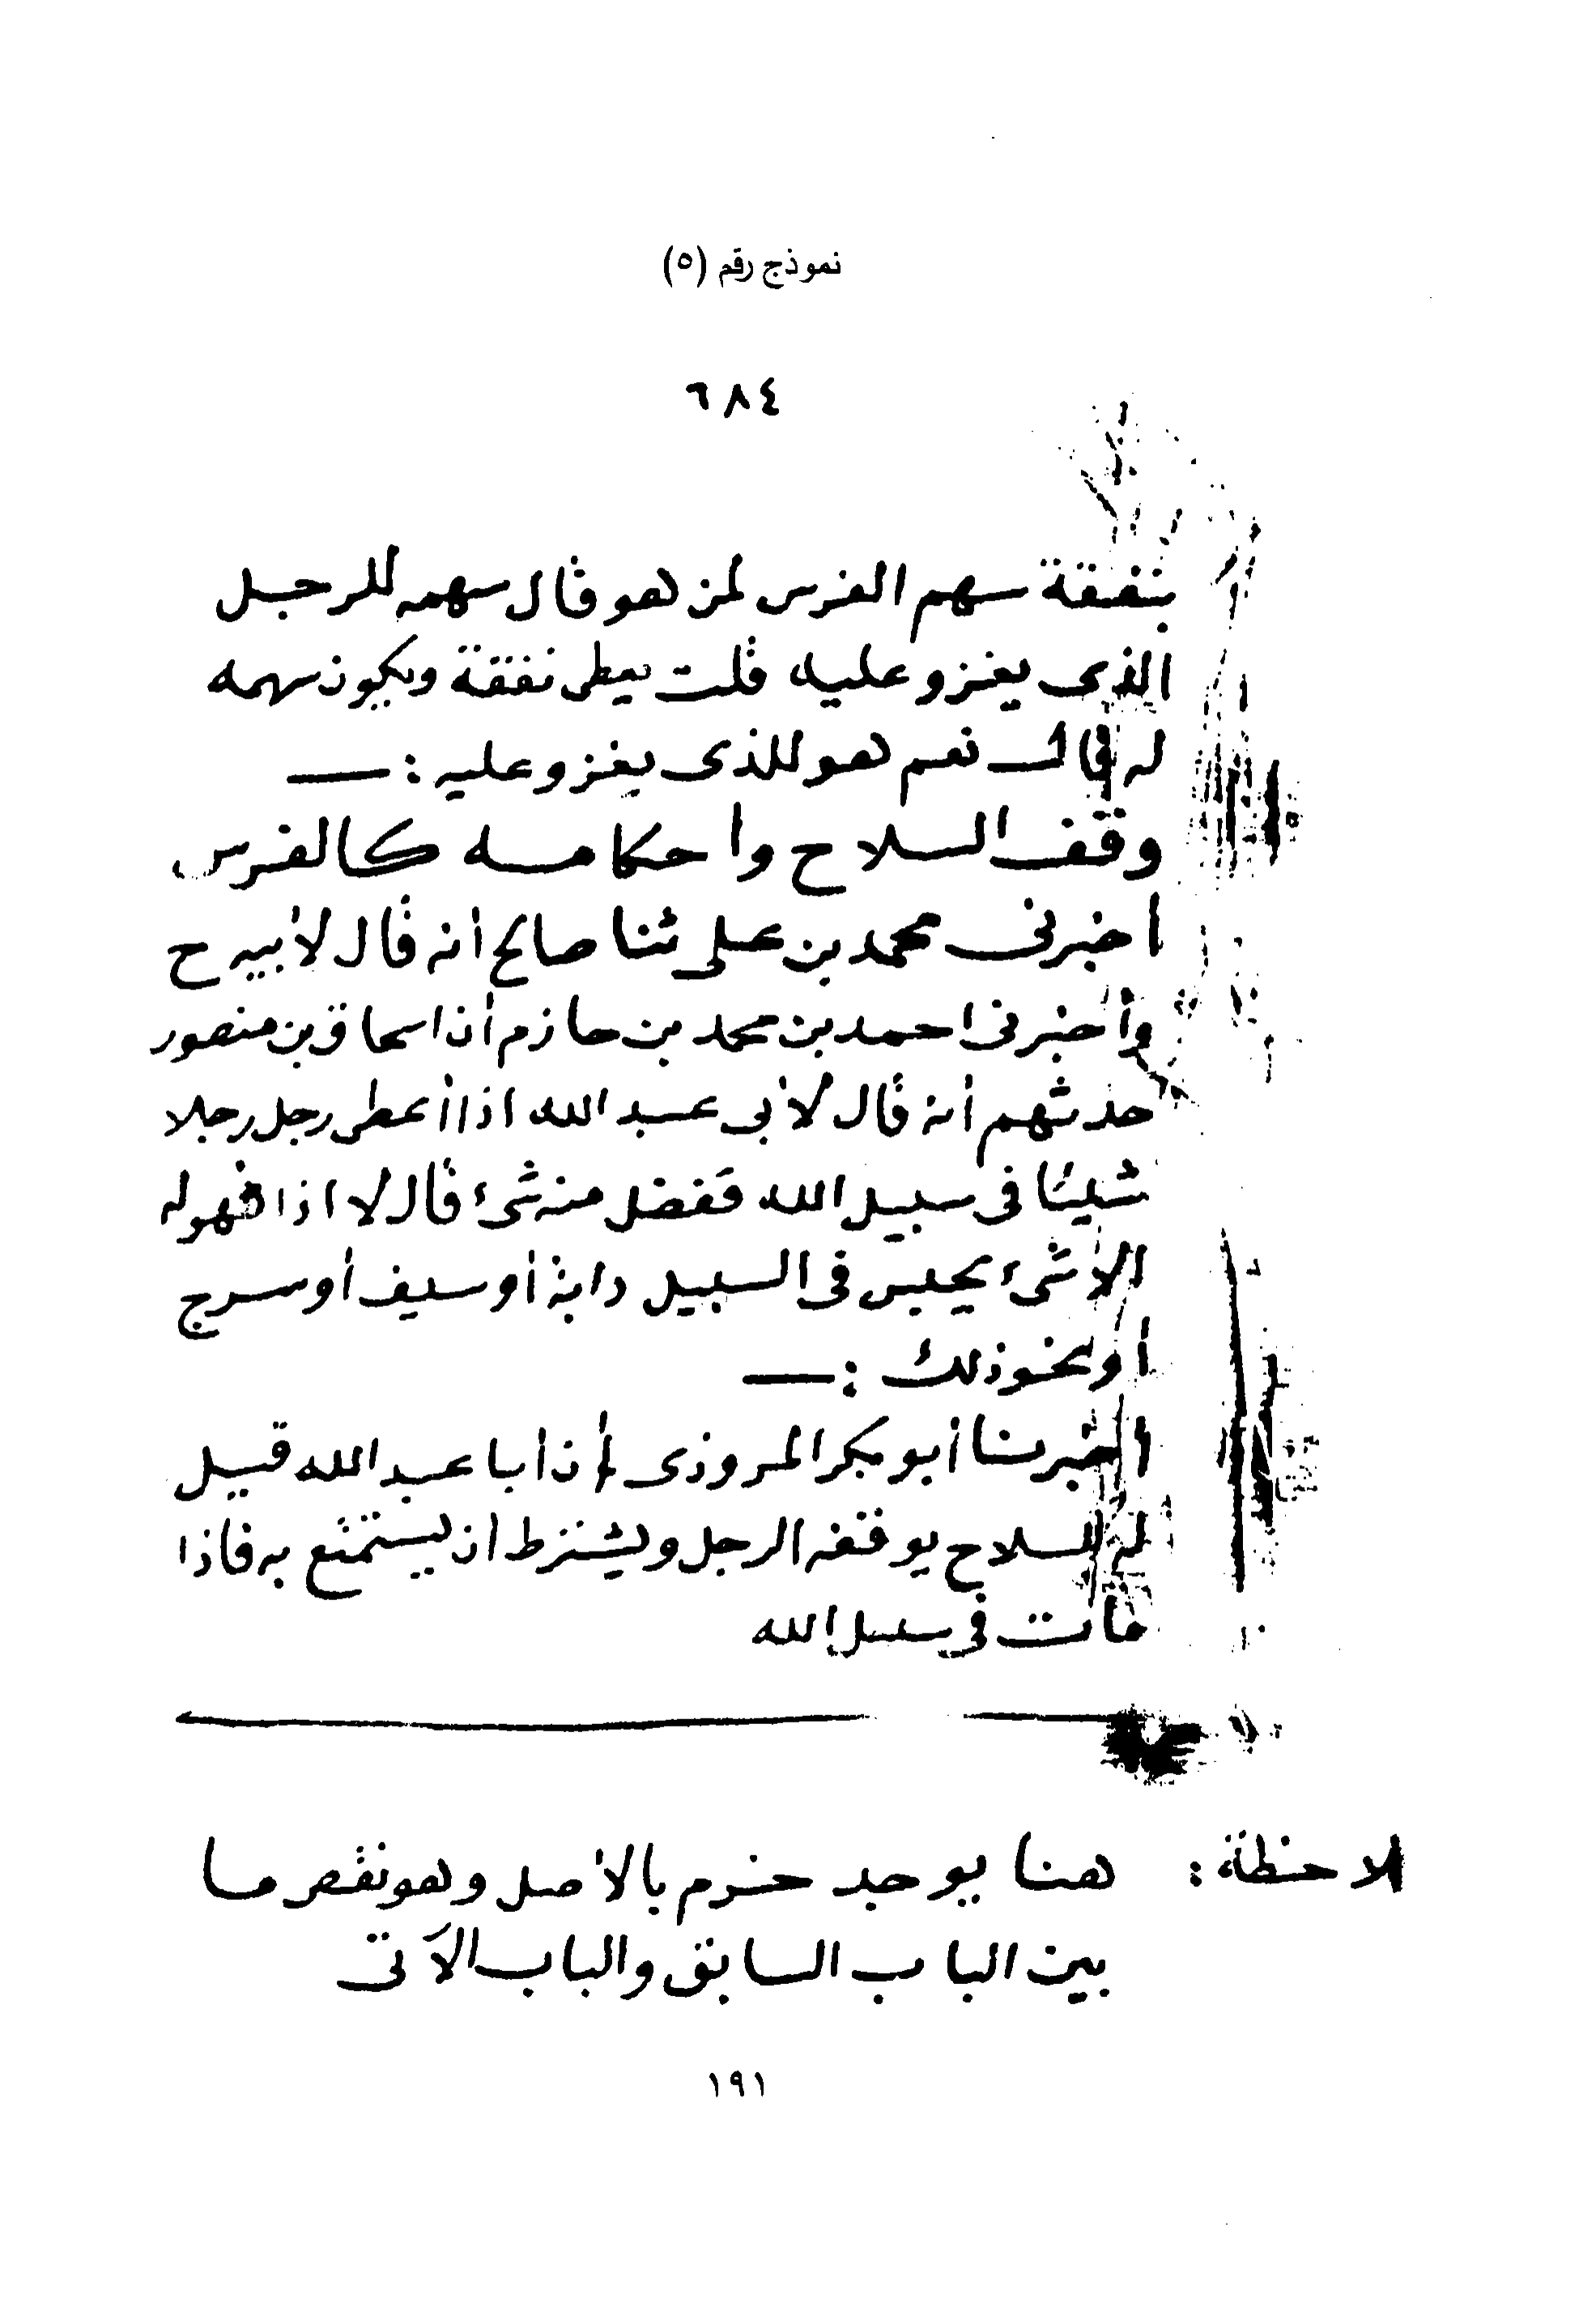 نموذج رقم (٥)
٦٨٤
بنفقة سهم الفرس لمن هو قال سهمه للرجل
الذى يغزو عليه قلت يعطى نفقة ويكون سهمه
له قال نعم هو للذى يغزو عليه :ــ
وقف السلاح وأحكامه كالفرس
أخبرنى محمد بن على ثنا صالح أنه قال لأبيه ح
وأخبرنى احمد بن محمد بن حازم أن اسحاق بن منصور
حدثهم أنه قال لأبى عبد الله اذا أعطى رجل رجلا
شيئا فى سبيل الله ففضل منه شىء قال لا اذا فهو له
الا شىء يحبس فى السبيل دابة أو سيف أو سرج
أو نحو ذلك :ــ
أخبرنا أبو بكر المروذى أن أبا عبد الله قيل
له السلاح يوقفه الرجل ويشترط ان يستمتع به فاذا
مات فى سبيل الله
ملاحظة : هنا يوجد خرم بالأصل وهو نقص ما
بين الباب السابق والباب الآتى
١٩١